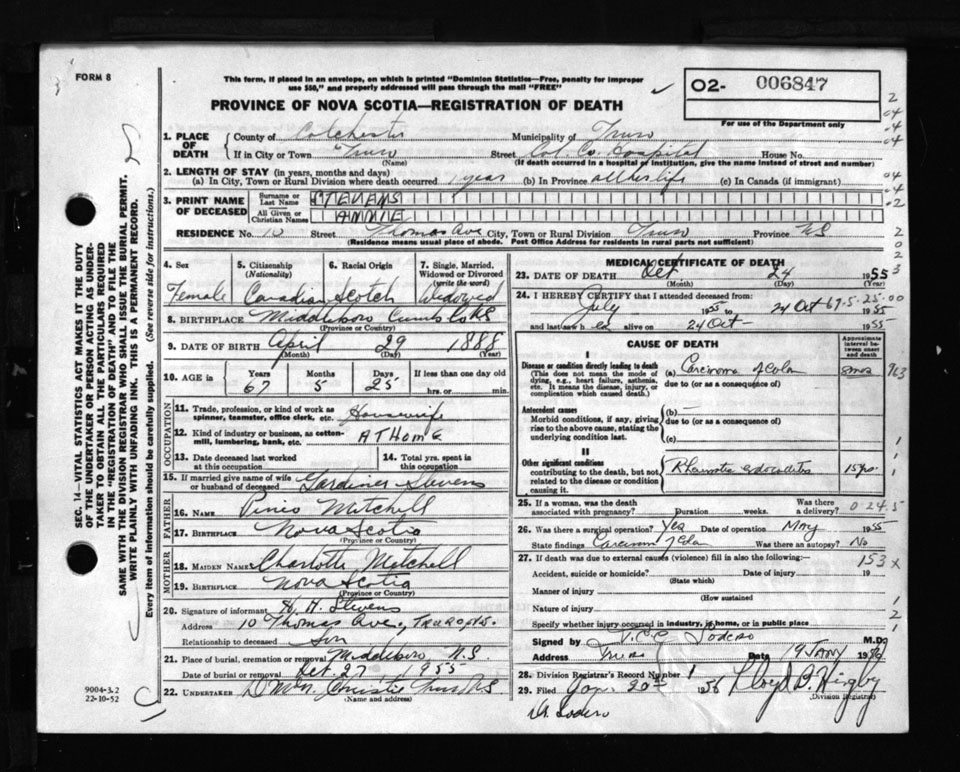 FORM 8
This form, if placed in an envelope, on which is printed "Dominion Statistics—Free, penalty for improper
use $50," and properly addressed will pass through the mail "FREE"
02- 006847
For use of the Department only
PROVINCE OF NOVA SCOTIA—REGISTRATION OF DEATH
1. PLACE OF DEATH
County of Colchester Municipality of Truro
If in City or Town Truro Street Col. Co. Hospital House No.
(Name) (If death occurred in a hospital or institution, give the name instead of street and number)
2. LENGTH OF STAY (in years, months and days)
(a) In City, Town or Rural Division where death occurred 1 year (b) In Province all her life (c) In Canada (if immigrant)
3. PRINT NAME OF DECEASED
Surname or Last Name STEVENS
All Given or Christian Names ANNIE
RESIDENCE No. 10 Street Thomas Ave City, Town or Rural Division Truro Province NS
(Residence means usual place of abode. Post Office Address for residents in rural parts not sufficient)
4. Sex
Female
5. Citizenship
(Nationality)
Canadian
6. Racial Origin
Scotch
7. Single, Married,
Widowed or Divorced
(write the word)
Widowed
8. BIRTHPLACE Middleboro Cumb Co NS
(Province or Country)
9. DATE OF BIRTH April 29 1888
(Month) (Day) (Year)
10. AGE in
Years Months Days If less than one day old
67 5 25 hrs. or min.
OCCUPATION
11. Trade, profession, or kind of work as
spinner, teamster, office clerk, etc. Housewife
12. Kind of industry or business, as cotton-
mill, lumbering, bank, etc. AT HOME
13. Date deceased last worked
at this occupation
14. Total yrs. spent in
this occupation
15. If married give name of wife
or husband of deceased Gardiner Stevens
FATHER
16. Name Mitchell
17. Birthplace Nova Scotia
(Province or Country)
MOTHER
18. MAIDEN NAME Charlotte Mitchell
19. BIRTHPLACE Nova Scotia
(Province or Country)
20. Signature of informant H. H. Stevens
Address 10 Thomas Ave., Truro N.S.
Relationship to deceased Son
21. Place of burial, cremation or removal Middleboro N.S.
Date of burial or removal Oct. 27, 1955
22. UNDERTAKER Christie Truro NS
(Name and address)
MEDICAL CERTIFICATE OF DEATH
23. DATE OF DEATH Oct 24 1955
(Month) (Day)
24. I HEREBY CERTIFY that I attended deceased from:
July 1955 to 24 Oct 1955
67-5-25-00
and last saw her alive on 24 Oct- 1955
CAUSE OF DEATH
Approximate
interval be-
tween onset
and death
I
Disease or condition directly leading to death
(This does not mean the mode of
dying, e.g., heart failure, asthenia,
etc. It means the disease, injury, or
complication which caused death.)
(a) Carcinoma of Colon
due to (or as a consequence of)
Antecedent causes
Morbid conditions, if any, giving
rise to the above cause, stating the
underlying condition last.
(b)
due to (or as a consequence of)
(c)
II
Other significant conditions
contributing to the death, but not
related to the disease or condition
causing it.
Rheumatic endocarditis 15 yrs.
25. If a woman, was the death
associated with pregnancy? Duration weeks.
Was there
a delivery?
0-24.5
26. Was there a surgical operation? Yes Date of operation May 1955
State findings Carcinoma of Colon Was there an autopsy? No
27. If death was due to external causes (violence) fill in also the following:—
153 x
Accident, suicide or homicide? Date of injury 19
(State which)
Manner of injury
(How sustained
Nature of injury
Specify whether injury occurred in industry, if home, or in public place
Signed by Sodero M.D.
Address Truro Date 19 Jany 1956
28. Division Registrar's Record Number 1
29. Filed Jany 20th 1956 Lloyd B. Higby
(Division Registrar)
Dr. Sodero
SEC. 14—VITAL STATISTICS ACT MAKES IT THE DUTY
OF THE UNDERTAKER OR PERSON ACTING AS UNDER-
TAKER TO OBTAIN ALL THE PARTICULARS REQUIRED
IN THE "REGISTRATION OF DEATH" AND TO FILE THE
SAME WITH THE DIVISION REGISTRAR WHO SHALL ISSUE THE BURIAL PERMIT.
WRITE PLAINLY WITH UNFADING INK. THIS IS A PERMANENT RECORD.
Every item of information should be carefully supplied. (See reverse side for instructions.)
9004-3.2
22-10-52